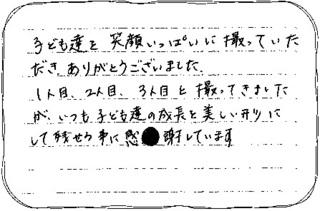 子ども達を 笑顔いっぱいに 撮っていた
だき、ありがとうございました。
1人目、2人目、3人目と 撮ってきました
が、いつも 子ども達の成長を 美しい形に
して残せる事に感謝しています